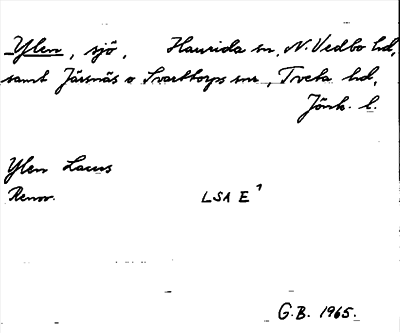 Ylen, sjö, Haurida sn, N. Vedbo hd,
samt Järsnäs o Svarttorps snr, Tveta hd,
Jönk. l.
Ylen Lacus
Renov. LSA E¹
G.B. 1965.